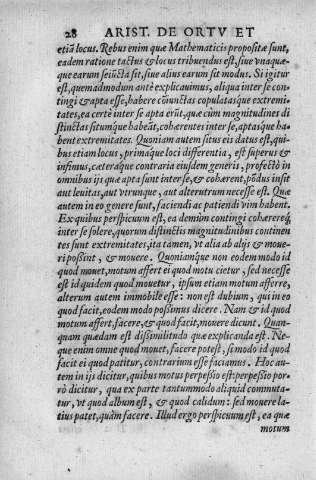 28 ARIST. DE ORTV ET
etiã locus. Rebus enim quæ Mathematicis propositæ sunt,
eadem ratione tactus & locus tribuendus est, siue vnaquæ-
que earum seiũcta sit, siue alius earum sit modus. Si igitur
est, quemadmodum antè explicauimus, aliqua inter se con-
tingi & apta esse, habere cõiunctas copulatasque extremi-
tates, ea certè inter se apta erũt, quæ cùm magnitudines di
stinctas situmque habeãt, cohærentes inter se, aptasque ha-
bent extremitates. Quoniam autem situs eis datus est, qui-
bus etiam locus, primaque loci differentia, est superus &
infimus, cæteraque contraria eiusdem generis, profectò in
omnibus ijs quæ apta sunt inter se, & cohærent, põdus insit
aut leuitas, aut vtrunque, aut alterutrum necesse est. Quæ
autem in eo genere sunt, faciendi ac patiendi vim habent.
Ex quibus perspicuum est, ea demùm contingi cohærereq́;
inter se solere, quorum distinctis magnitudinibus continen
tes sunt extremitates, ita tamen, vt alia ab alijs & moue-
ri possint, & mouere. Quoniamque non eodem modo id
quod mouet, motum affert ei quod motu cietur, sed necesse
est id quidem quod mouetur, ipsum etiam motum afferre,
alterum autem immobile esse: non est dubium, qui in eo
quod facit, eodem modo possimus dicere. Nam & id quod
motum affert, facere, & quod facit, mouere dicunt. Quan-
quam quædam est dissimilitudo quæ explicanda est. Ne-
que enim omne quod mouet, facere potest, si modo id quod
facit ei quod patitur, contrarium esse faciamus. Hoc au-
tem in ijs dicitur, quibus motus perpessio est: perpessio por-
rò dicitur, qua ex parte tantummodo aliquid commuta-
tur, vt quod album est, & quod calidum: sed mouere la-
tius patet, quàm facere. Illud ergo perspicuum est, ea quæ
motum